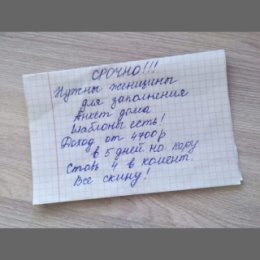 СРОЧНО!!!
Нужны женщины
для заполнения
Анкет дома
Шаблоны есть!
Доход от 4700р
в 5 дней на карту
Ставь 4 в комент.
Все скину!